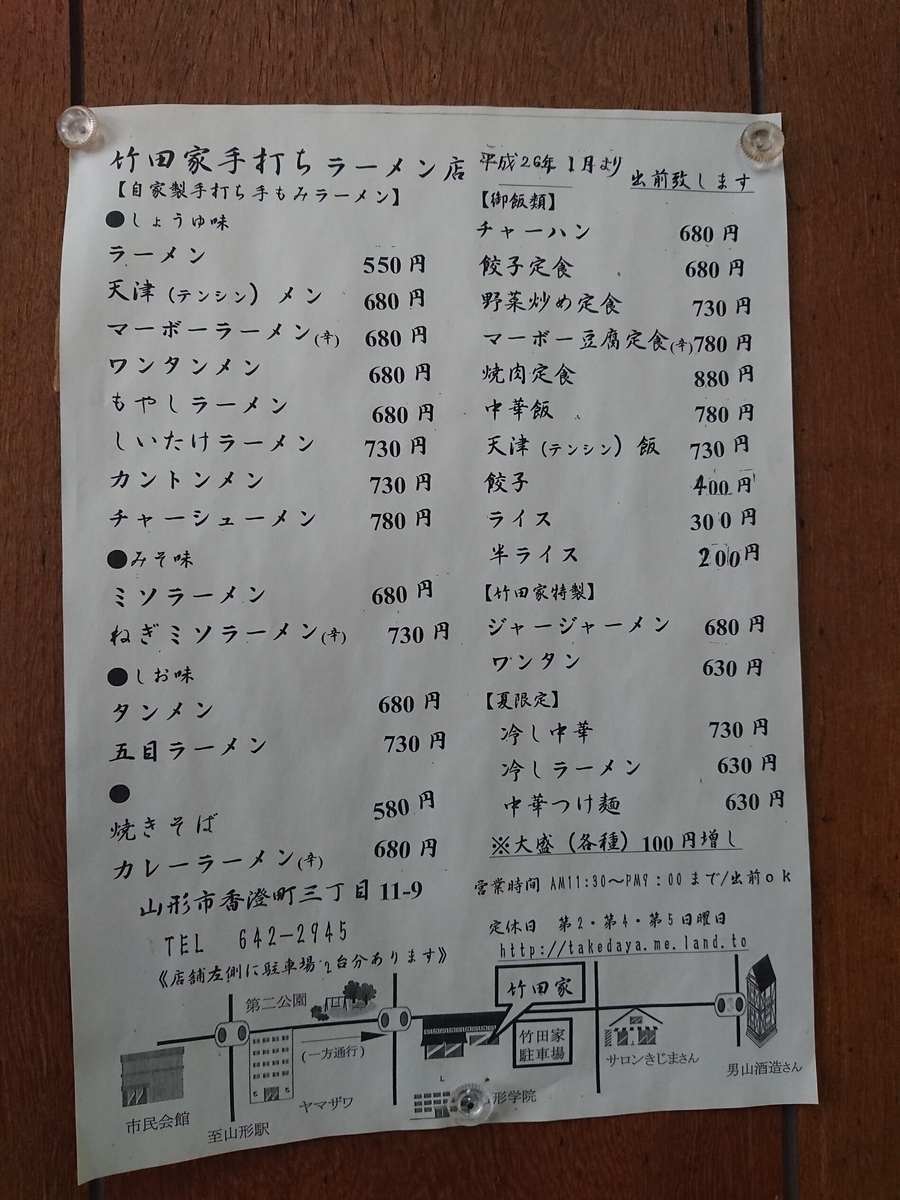 竹田家手打ちラーメン店
【自家製手打ち手もみラーメン】
●しょうゆ味
ラーメン 550円
天津（テンシン）メン 680円
マーボーラーメン(辛) 680円
ワンタンメン 680円
もやしラーメン 680円
しいたけラーメン 730円
カントンメン 730円
チャーシューメン 780円
●みそ味
ミソラーメン 680円
ねぎミソラーメン(辛) 730円
●しお味
タンメン 680円
五目ラーメン 730円
●
焼きそば 580円
カレーラーメン(辛) 680円
山形市香澄町三丁目11-9
TEL 642-2945
《店舗左側に駐車場2台分あります》
平成26年1月より
出前致します
【御飯類】
チャーハン 680円
餃子定食 680円
野菜炒め定食 730円
マーボー豆腐定食(辛)780円
焼肉定食 880円
中華飯 780円
天津（テンシン）飯 730円
餃子 400円
ライス 300円
半ライス 200円
【竹田家特製】
ジャージャーメン 680円
ワンタン 630円
【夏限定】
冷し中華 730円
冷しラーメン 630円
中華つけ麺 630円
※大盛（各種）100円増し
営業時間 AM11:30～PM9:00まで/出前ok
定休日 第2・第4・第5日曜日
http://takedaya.me.land.to
竹田家
第二公園
(一方通行)
竹田家
駐車場
サロンきじまさん
男山酒造さん
市民会館
至山形駅
ヤマザワ
形学院